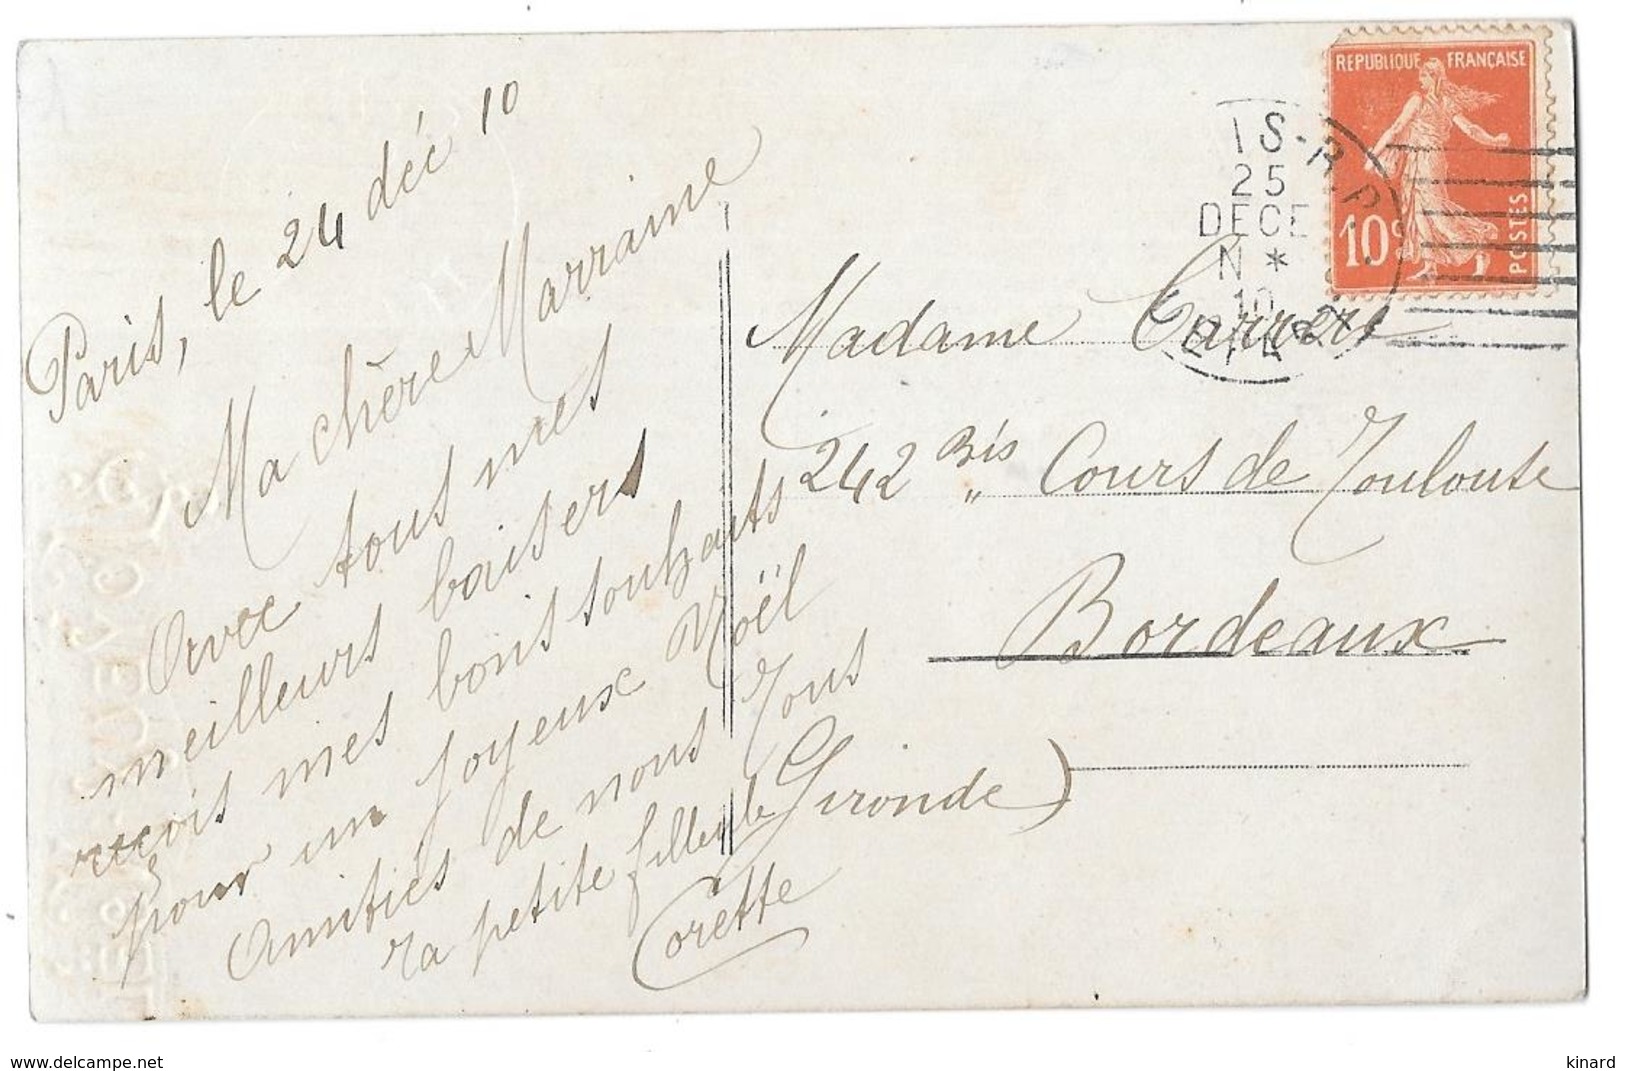 Paris, le 24 déc 10
Ma chère Marraine
Avec tous mes
meilleurs baisers
reçois mes bons souhaits
pour un joyeux Noël
Amitiés de nous Tous
Ta petite fille
Corette
Madame Carrère
242 Bis Cours de Toulouse
Bordeaux
Gironde)
REPUBLIQUE FRANÇAISE
10c
POSTES
IS-R.P.
25
DECE
N *
10
www.delcampe.net
kinard